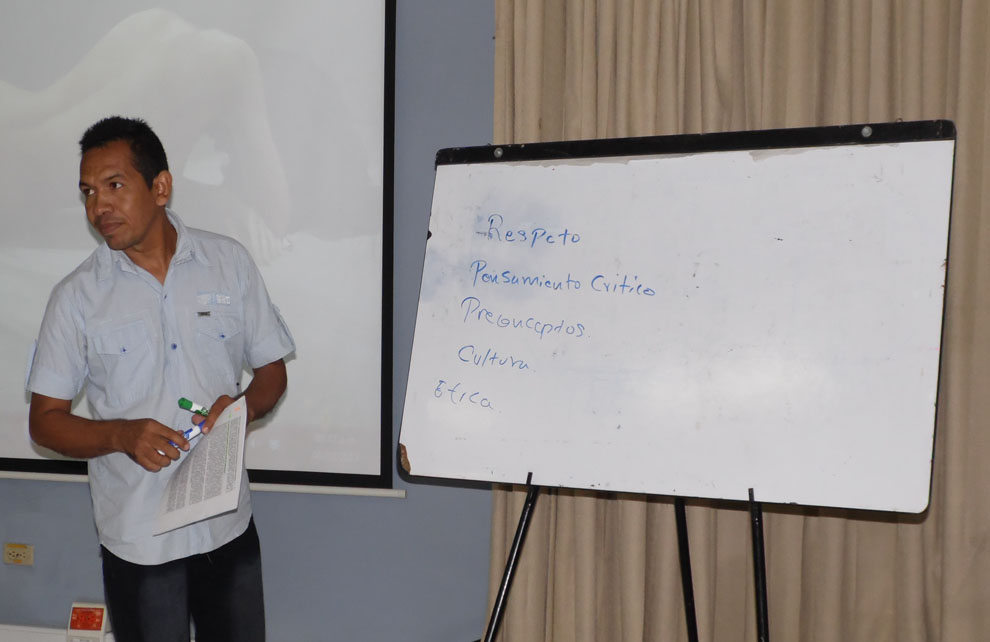 -Respeto
Pensamiento Critico
Preconceptos.
Cultura.
Etica.